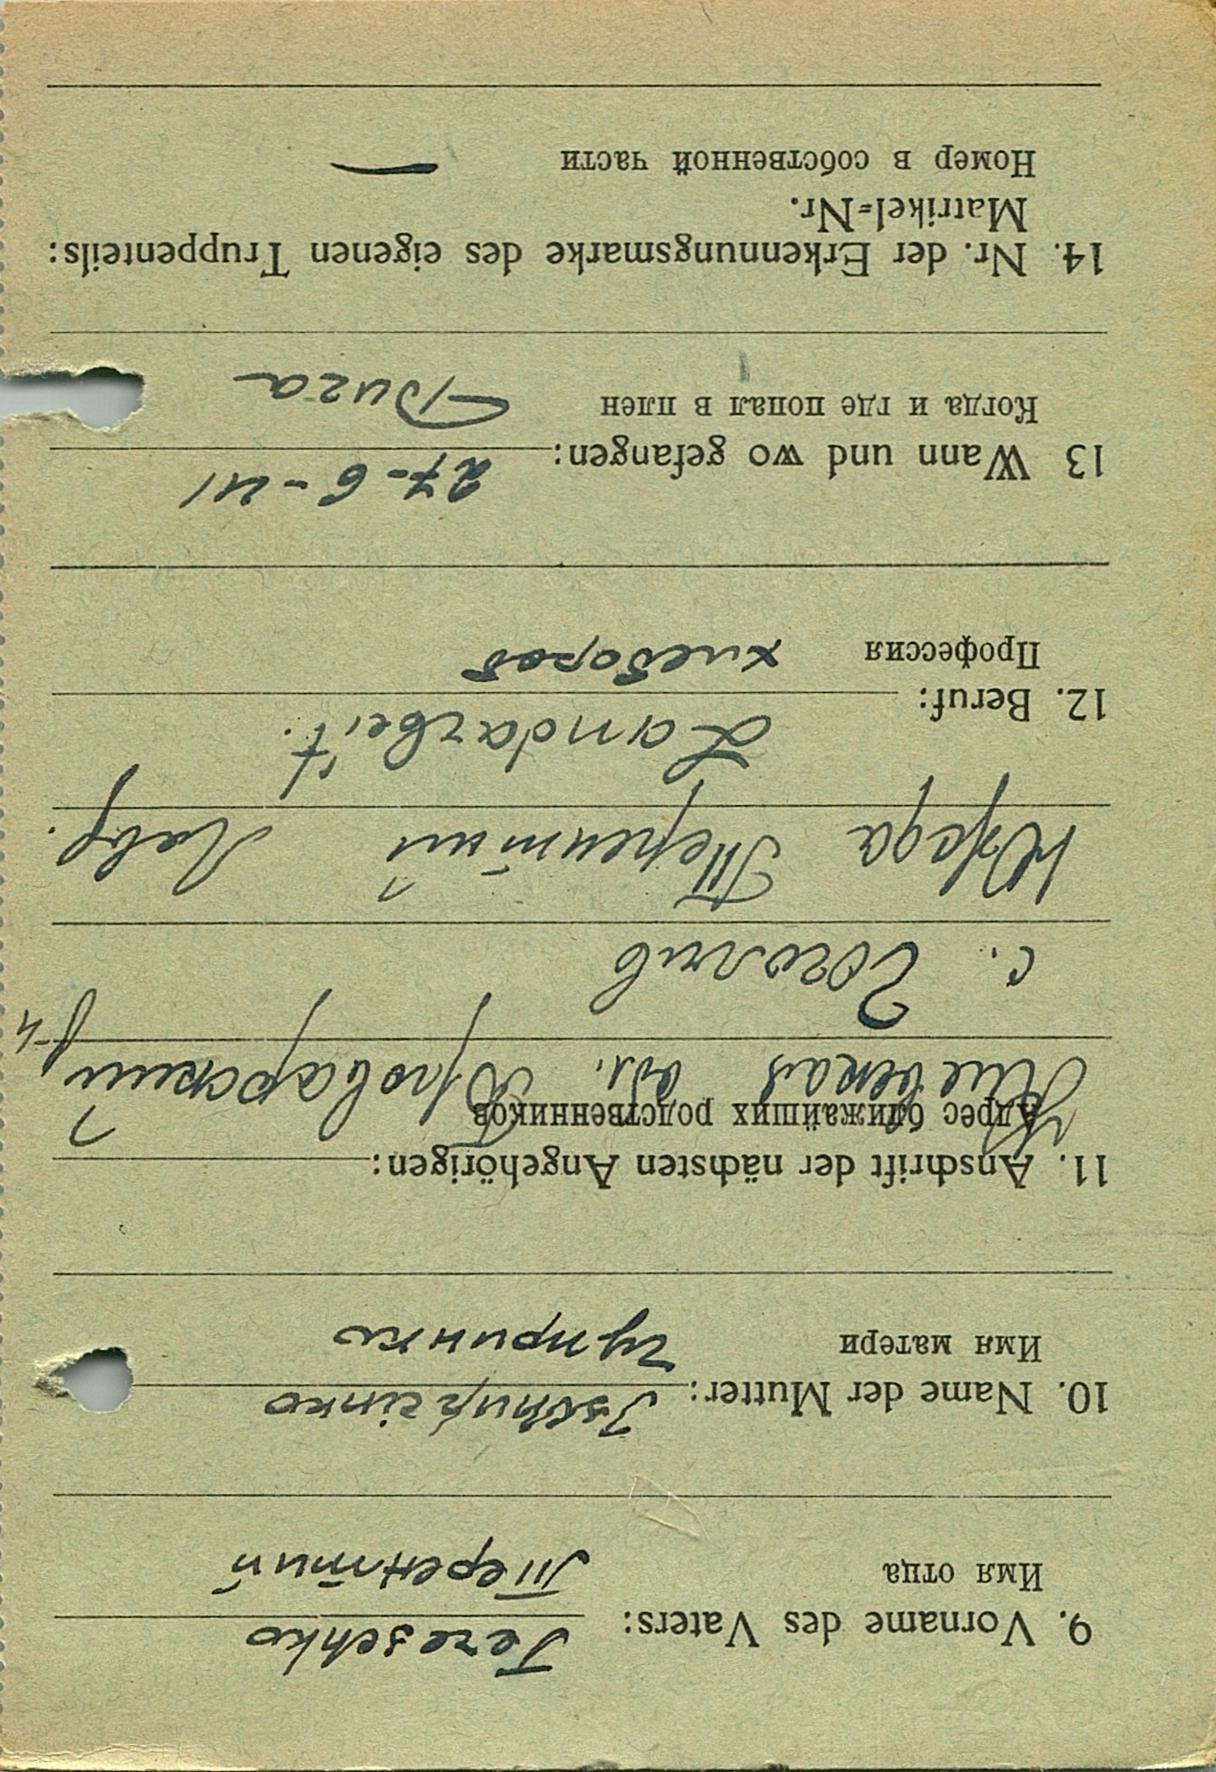 9. Vorname des Vaters: Tereschko
Имя отца Терентий
10. Name der Mutter: Tschuprinko
Имя матери Чупринко
11. Anschrift der nächsten Angehörigen:
Адрес ближайших родственников
Киевская обл. Броварский р-н
с. Гоголив
Терентий Лавр.
12. Beruf: Landarbeit.
Профессия хлебороб
13 Wann und wo gefangen: 27-6-41
Когда и где попал в плен Рига
14. Nr. der Erkennungsmarke des eigenen Truppenteils:
Matrikel=Nr.
Номер в собственной части —